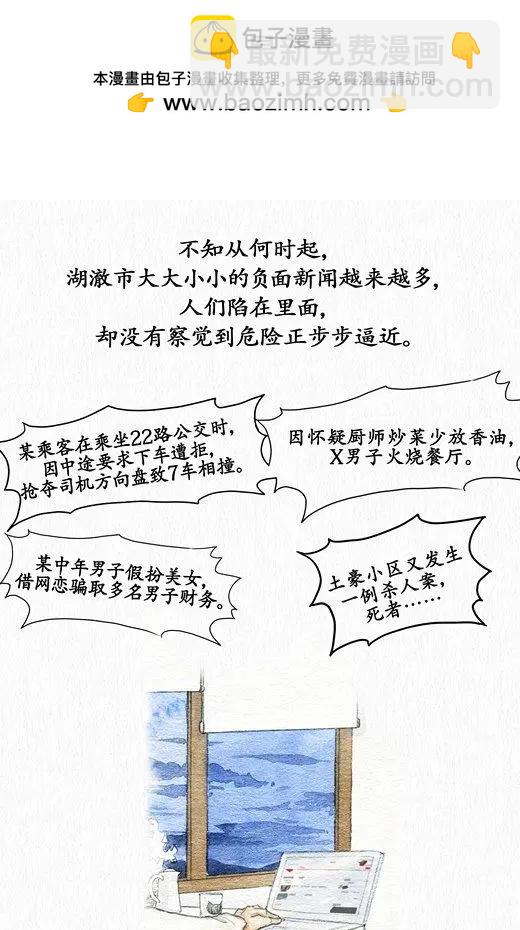 包子漫畫
最新免费漫画
本漫畫由包子漫畫收集整理,更多免費漫畫請訪問
www.baozimh.com
baozimh.com
不知从何时起,
湖澈市大大小小的负面新闻越来越多,
人们陷在里面,
却没有察觉到危险正步步逼近。
某乘客在乘坐22路公交时,
因中途要求下车遭拒,
抢夺司机方向盘致7车相撞。
因怀疑厨师炒菜少放香油,
X男子火烧餐厅。
某中年男子假扮美女,
借网恋骗取多名男子财务。
土豪小区又发生
一例杀人案,
死者……